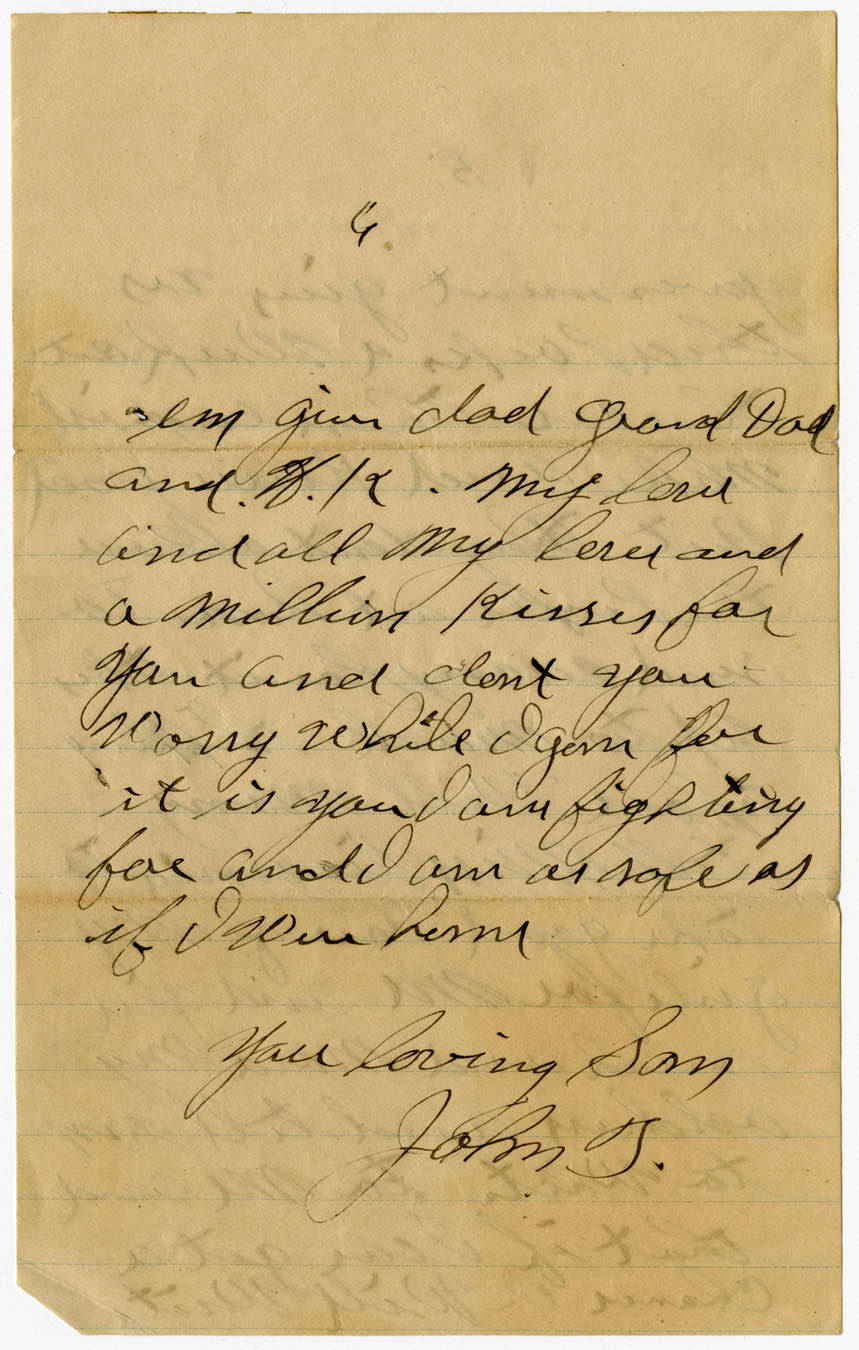 6
em give dad Grand Dad
and. W. K. My love
and all my love and
a million Kisses for
you and dont you
worry while I gone for
it is you I am fighting
for and I am as safe as
if I were home
You loving Son
John T.